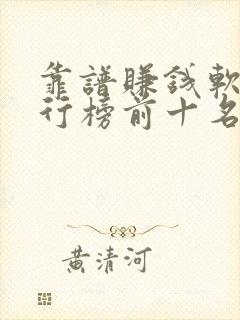 靠譜賺錢軟
行榜前十名
黃清河